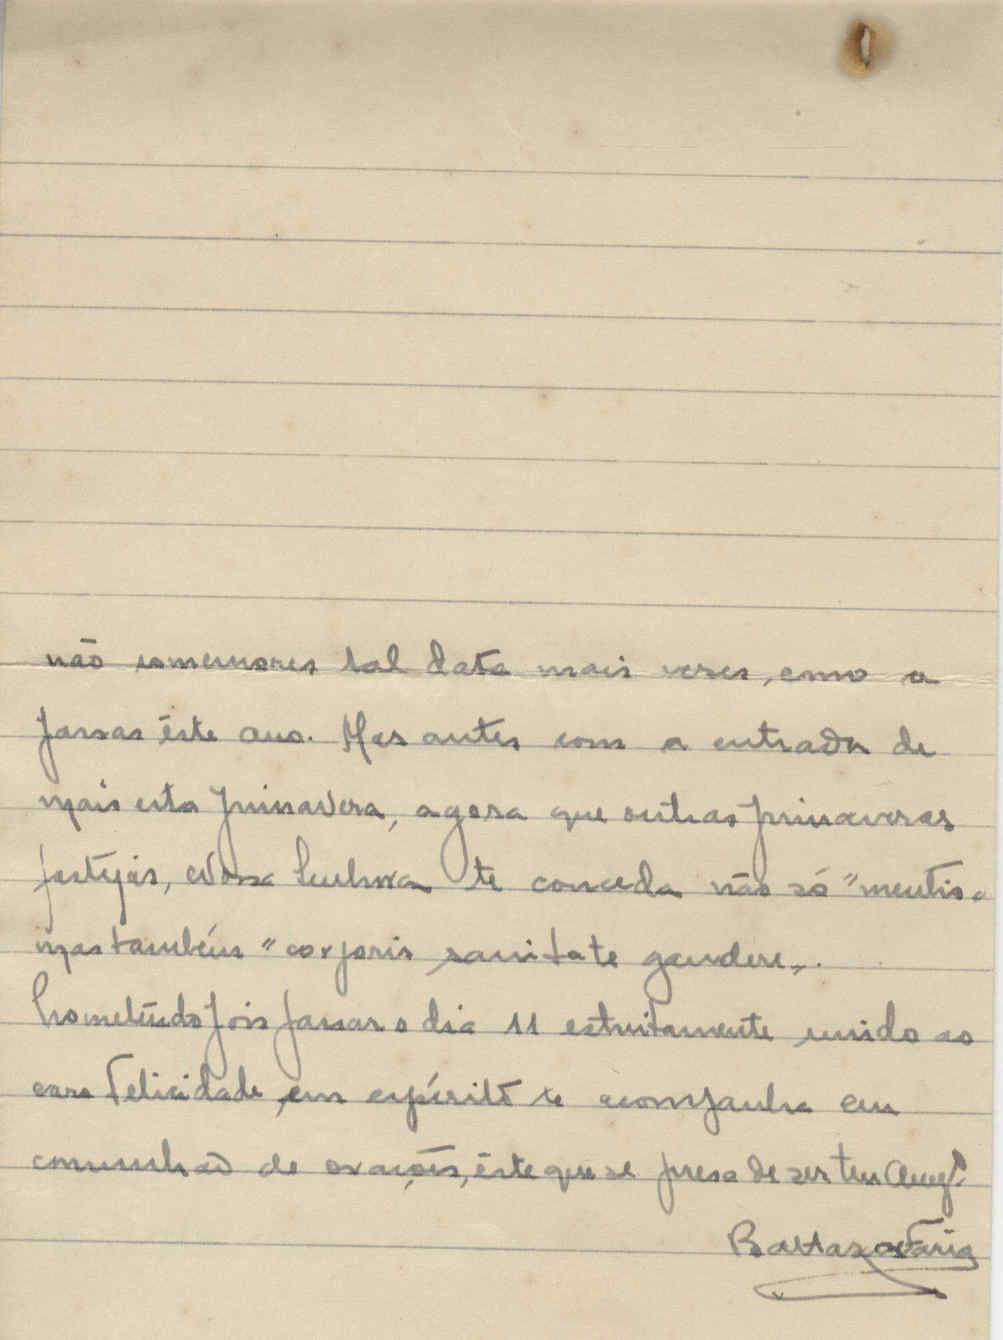 não comemores tal data mais vezes, como a
passas êste ano. Mas antes com a entrada de
mais esta primavera, agora que outras primaveras
festejas, Nossa Senhora te conceda não só "mentis"
mas também "corporis sanitate gaudere".
Prometendo pois passar o dia 11 estreitamente unido ao
caro Felicidade, em espírito te acompanha em
comunhão de orações, êste que se presa de ser teu Amgº
Baltazar Faria